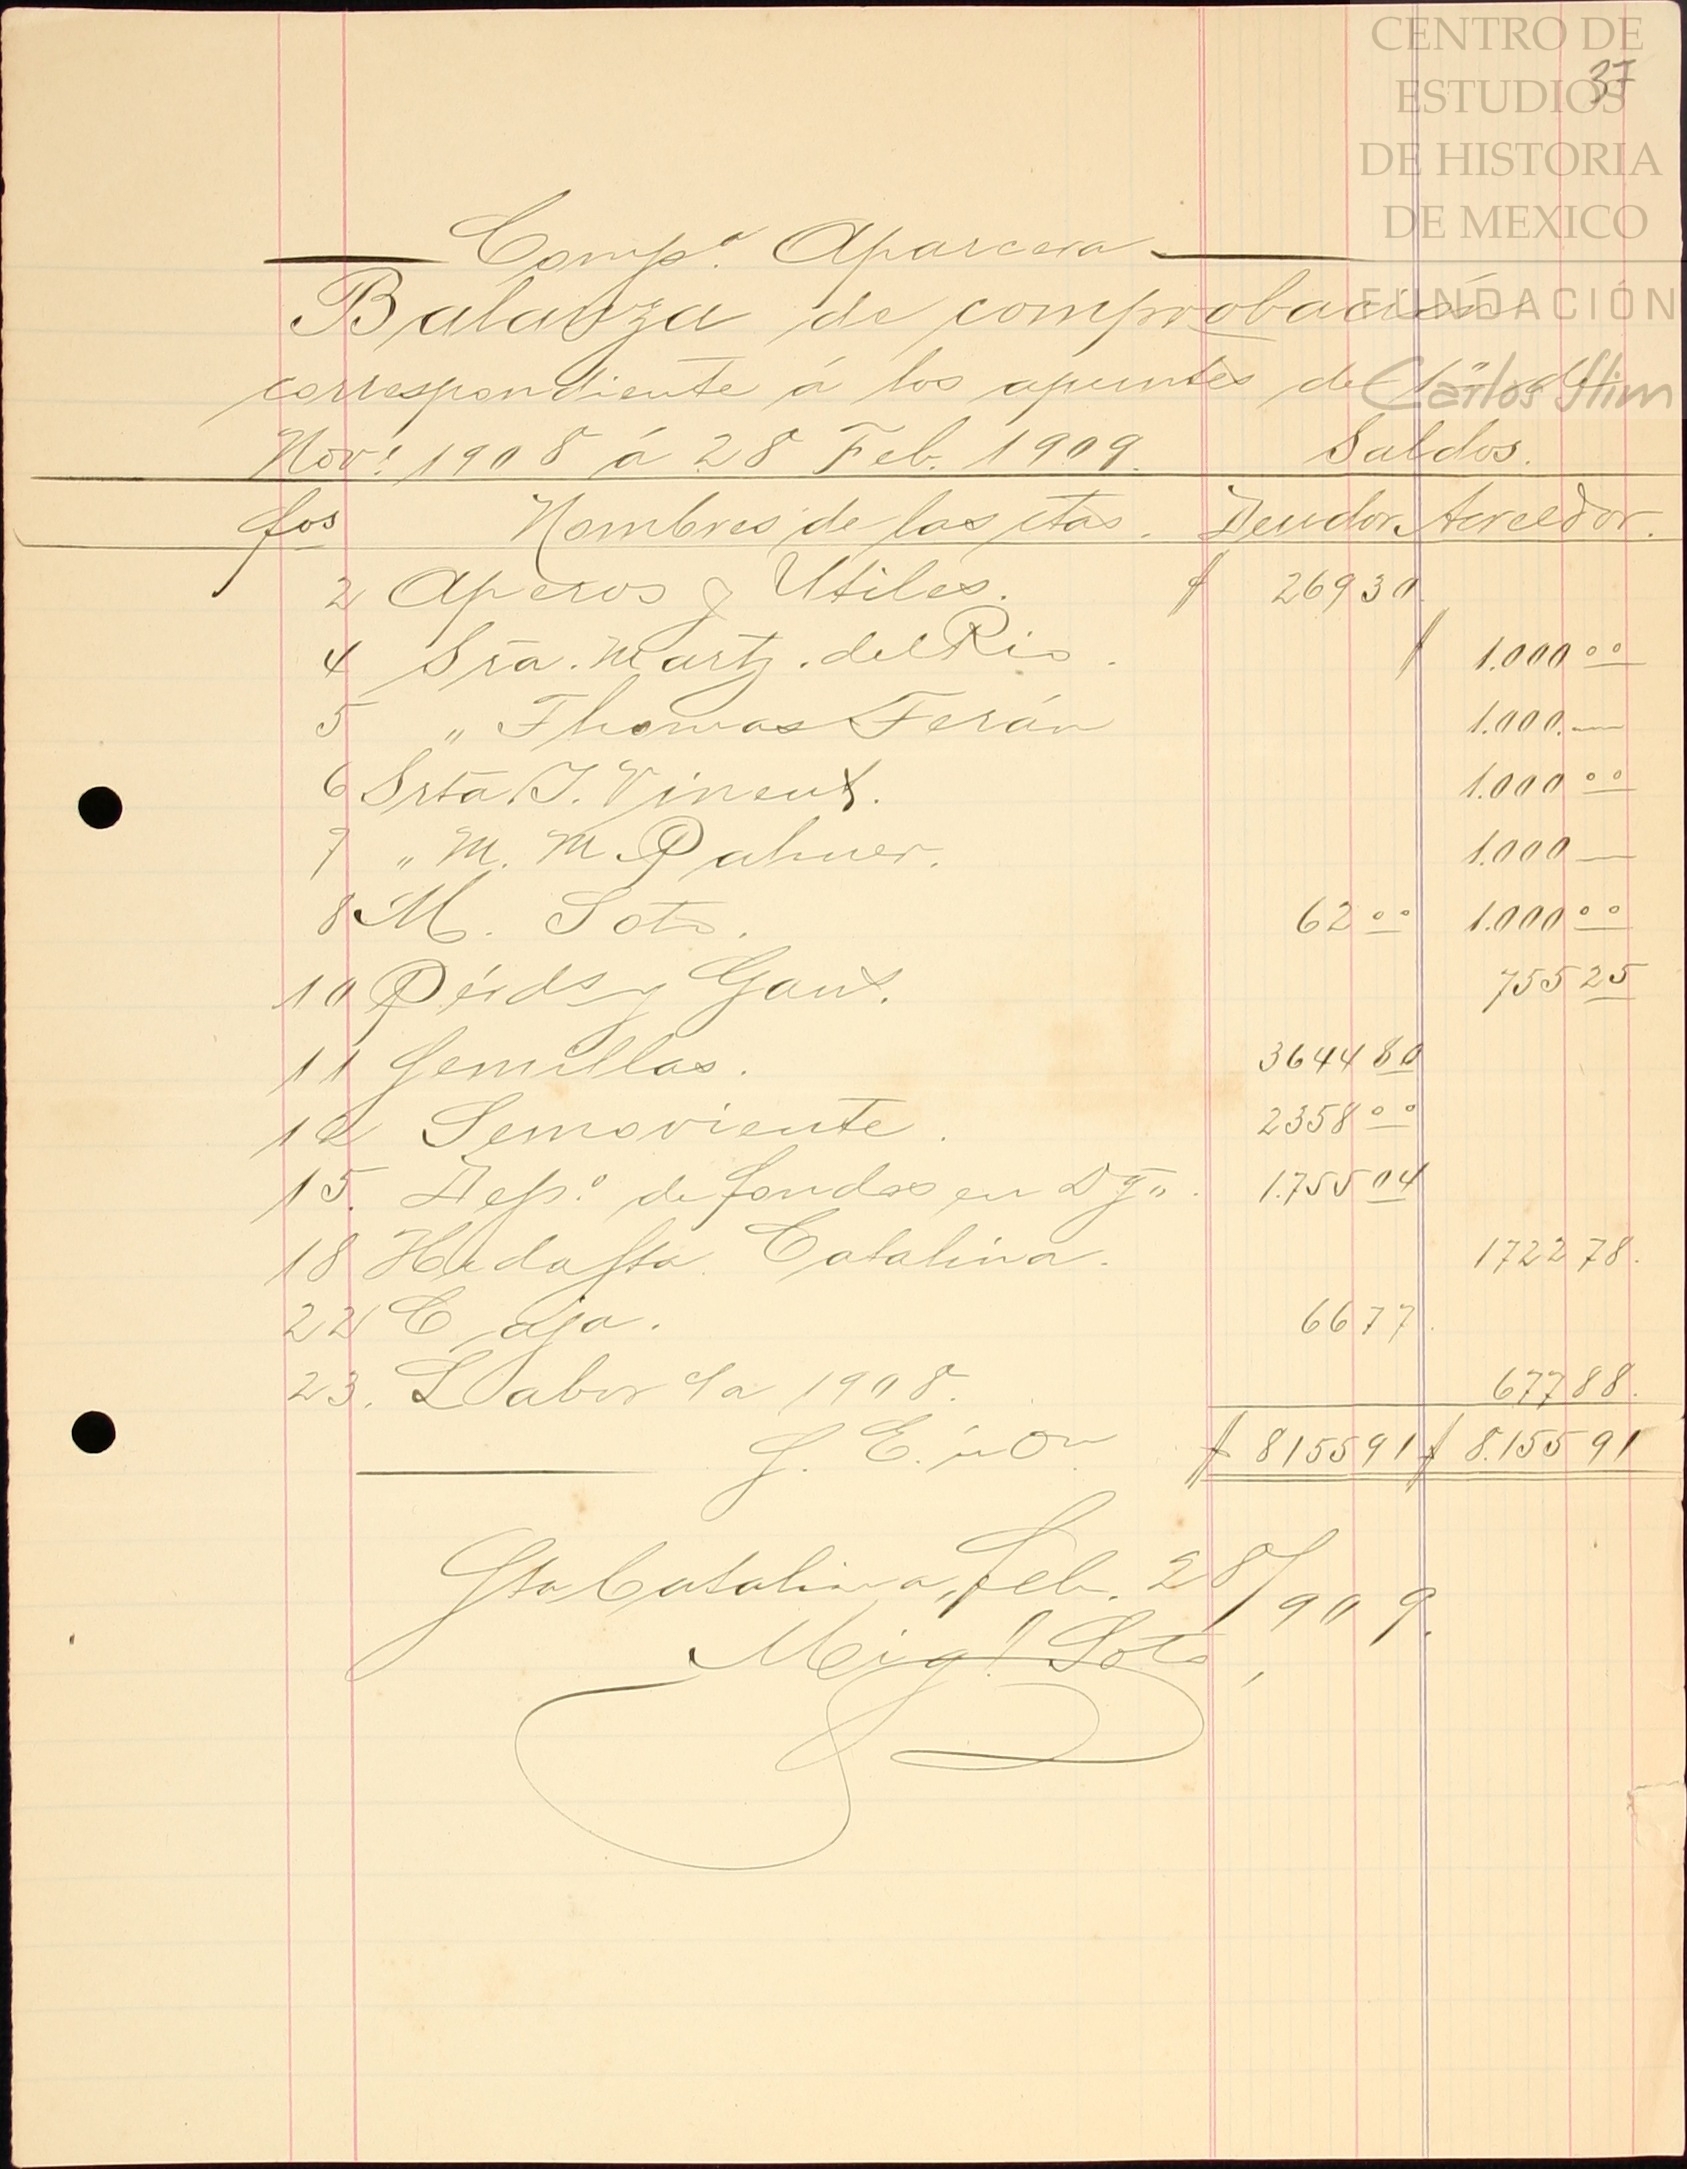 CENTRO DE
ESTUDIOS
DE HISTORIA
DE MEXICO
FUNDACIÓN
Carlos Slim
37
Comp.ª Aparcera
Balanza de comprobación
correspondiente á los apuntes de 1º de
Nov.e 1908 á 28 Feb. 1909. Saldos.
fos Nombres de las ctas. Deudor. Acreedor.
2 Aperos y Utiles. $ 269 30
4 Sra. Martz. del Rio. $ 1.000 00
5 " Thomas Terán 1.000. —
6 Srta. J. Vinent. 1.000 00
7 " M. M. Palmer. 1.000 —
8 M. Soto. 62 00 1.000 00
10 Pérds y Gans. 755 25
11 Semillas. 3644 80
12 Semoviente. 2358 00
15. Dep.º de fondos en Dgo. 1.755 04
18 Hda Sta. Catalina. 1722 78.
22 Caja. 66 77.
23. Labor da 1908. 677 88.
S. E. ú On. $ 8155 91 $ 8.155 91
Sta Catalina, Feb. 28/1909.
Migl Soto,